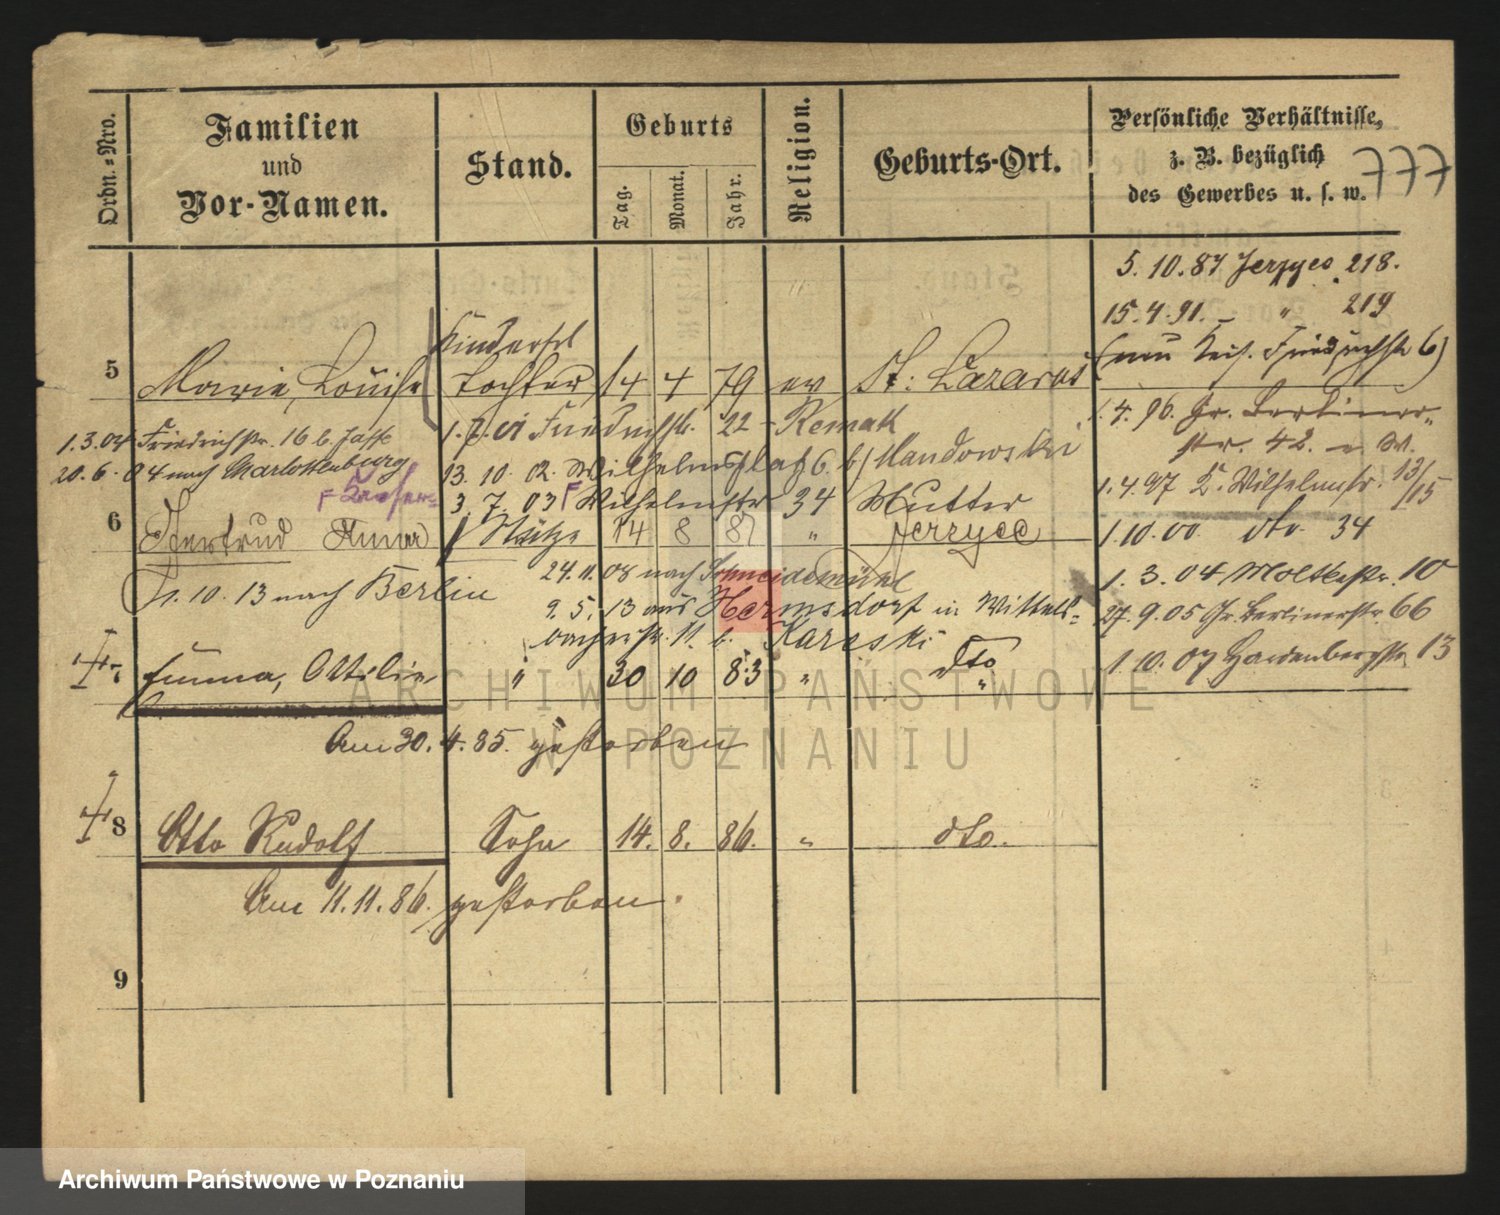 Ordn.-Nro.
Familien
und
Vor-Namen.
Stand.
Geburts
Tag.
Monat.
Jahr.
Religion.
Geburts-Ort.
Persönliche Verhältnisse,
z. B. bezüglich
des Gewerbes u. s. w.
777
5. 10. 87 Jerzyce 218.
15. 4. 91. — " 219
5
Marie, Louise
Tochter
14 4 79 ev St: Lazarus
1. 3. 04 Friedrichstr. 16 b. Jaffe
Friedrichstr. 22 - Remak
1. 4. 96. Gr. Berliner-
str. 42.
20. 6. 04 nach Charlottenburg
13. 10. 02. Wilhelmsplatz 6 b/ Mandowski
1. 4. 97 Wilhelmstr. 13/15
3. 7. 03 Wilhelmstr 34 Mutter
6
Gertrud Anna
Stütze
14 8 81 " Jerzyce
1. 10. 00 dto 34
24. 11. 08 nach Schneidemühl
1. 10. 13 nach Berlin
1. 3. 04 Moltkestr. 10
9. 5. 13 aus Hermsdorf in Wittels-
bacherstr. 11. b. Kareski
27. 9. 05 Gr. Berlinerstr. 66
7
Emma, Ottilie " 30 10 83 " dto
1. 10. 07 Hardenbergstr. 13
Am 30. 4. 85. gestorben
8
Otto Rudolf Sohn 14. 8. 86. " dto.
Am 11. 11. 86. gestorben.
9
ARCHIWUM PAŃSTWOWE
W POZNANIU
Archiwum Państwowe w Poznaniu